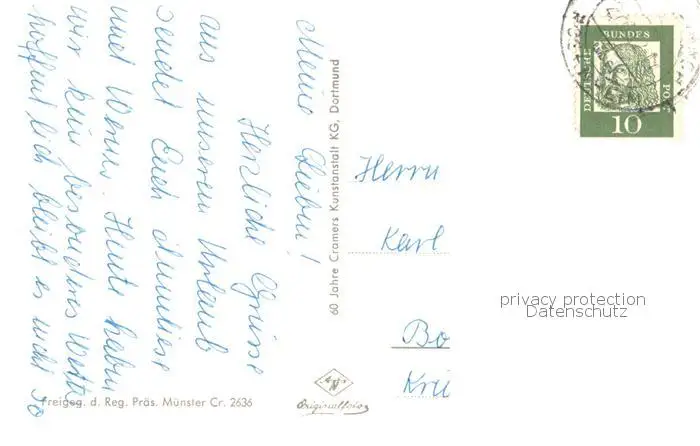 Meine Lieben!
Herzliche Grüsse
aus unseren Urlaub
sendet Euch Anneliese
und Werner. Heute haben
wir kein besonderes Wetter
hoffentlich bleibt es nicht so
Freigeg. d. Reg. Präs. Münster Cr. 2636
60 Jahre Cramers Kunstanstalt KG, Dortmund
Originalfoto
DEUTSCHE
BUNDES
POST
10
Herrn
Karl
Bo
Krü
privacy protection
Datenschutz